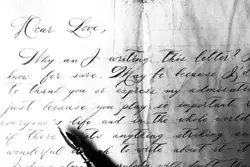 Dear Love,
Why am I writing this letter? I
know for sure. May be because I
to thank you or express my admiration
just because you play so important
everyone's life and in the whole world
if there is anything striking
wonderful to write about it.